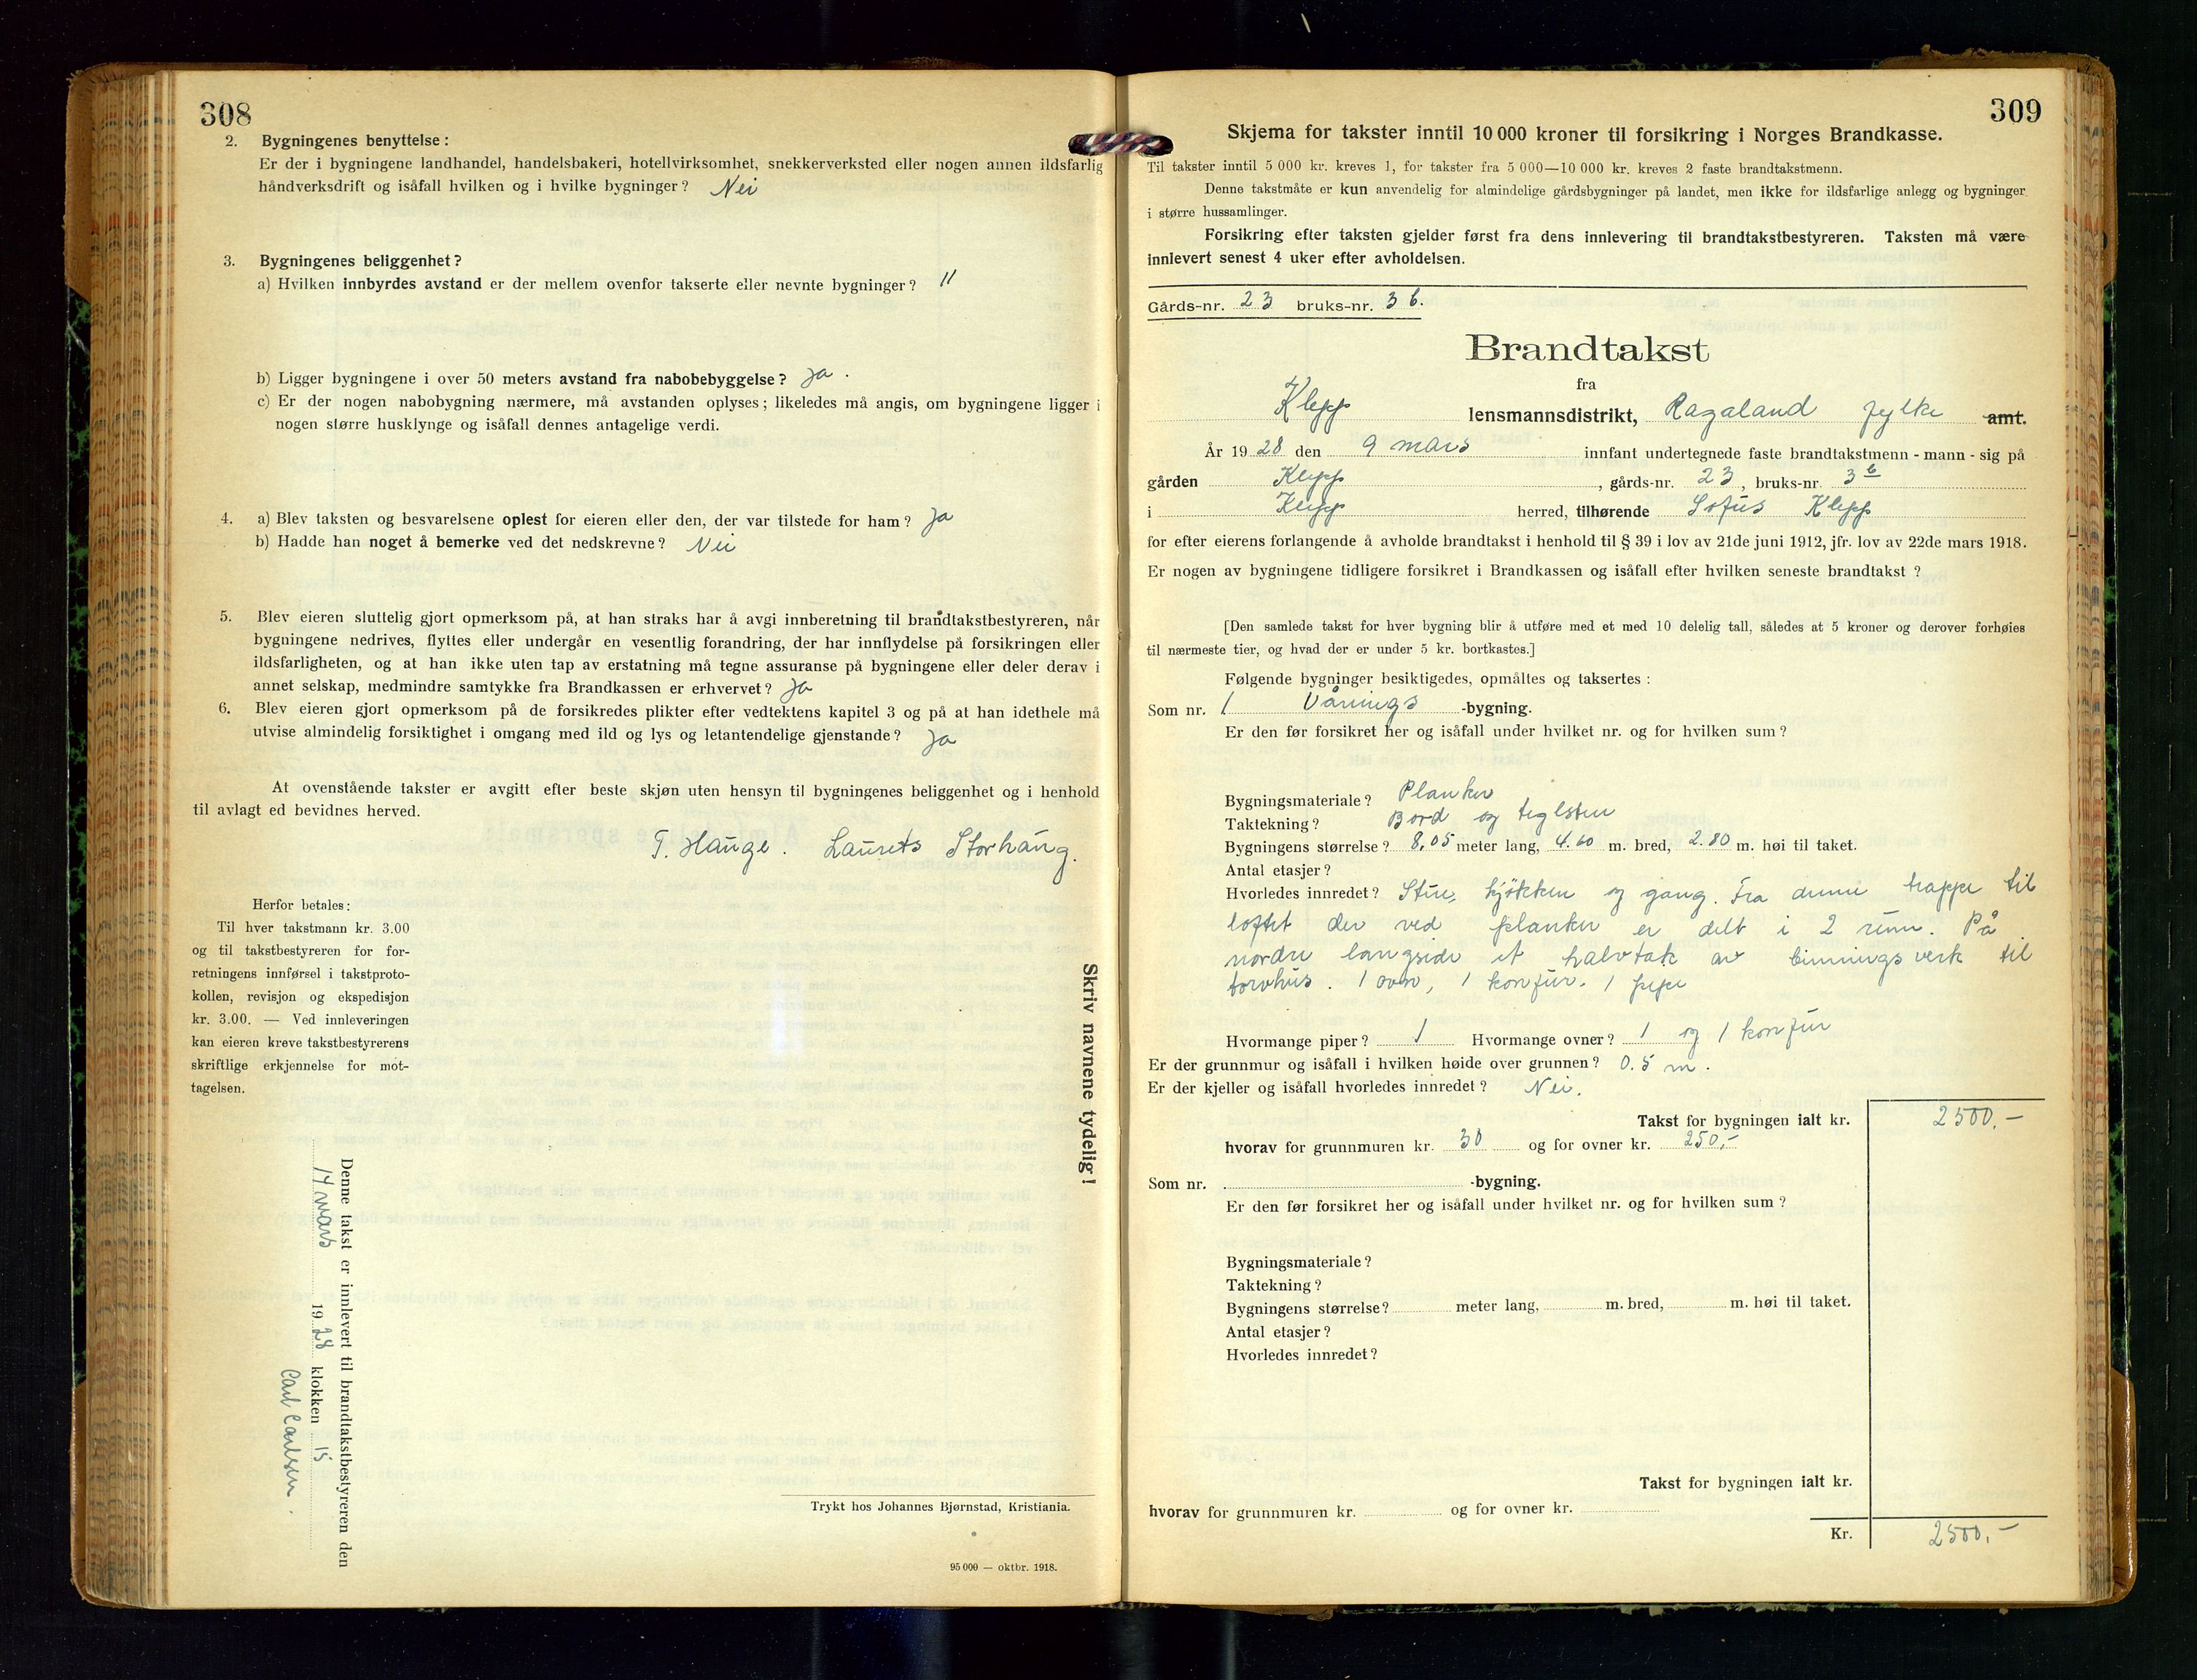 308
2. Bygningenes benyttelse:
Er der i bygningene landhandel, handelsbakeri, hotellvirksomhet, snekkerverksted eller nogen annen ildsfarlig
håndverksdrift og isåfall hvilken og i hvilke bygninger? Nei
3. Bygningenes beliggenhet?
a) Hvilken innbyrdes avstand er der mellem ovenfor takserte eller nevnte bygninger? "
b) Ligger bygningene i over 50 meters avstand fra nabobebyggelse? Ja.
c) Er der nogen nabobygning nærmere, må avstanden oplyses; likeledes må angis, om bygningene ligger i
nogen større husklynge og isåfall dennes antagelige verdi.
4. a) Blev taksten og besvarelsene oplest for eieren eller den, der var tilstede for ham? Ja
b) Hadde han noget å bemerke ved det nedskrevne? Nei
5. Blev eieren sluttelig gjort opmerksom på, at han straks har å avgi innberetning til brandtakstbestyreren, når
bygningene nedrives, flyttes eller undergår en vesentlig forandring, der har innflydelse på forsikringen eller
ildsfarligheten, og at han ikke uten tap av erstatning må tegne assuranse på bygningene eller deler derav i
annet selskap, medmindre samtykke fra Brandkassen er erhvervet? Ja
6. Blev eieren gjort opmerksom på de forsikredes plikter efter vedtektens kapitel 3 og på at han idethele må
utvise almindelig forsiktighet i omgang med ild og lys og letantendelige gjenstande? Ja
At ovenstående takster er avgitt efter beste skjøn uten hensyn til bygningenes beliggenhet og i henhold
til avlagt ed bevidnes herved.
T. Hauge. Laurets Storhaug.
Herfor betales:
Til hver takstmann kr. 3.00
og til takstbestyreren for for-
retningens innførsel i takstproto-
kollen, revisjon og ekspedisjon
kr. 3.00. — Ved innleveringen
kan eieren kreve takstbestyrerens
skriftlige erkjennelse for mot-
tagelsen.
Skriv navnene tydelig!
Denne takst er innlevert til brandtakstbestyreren den
14 mars 1928 klokken 15
Carl Carlsen.
Trykt hos Johannes Bjørnstad, Kristiania.
95 000 — oktbr. 1918.
309
Skjema for takster inntil 10 000 kroner til forsikring i Norges Brandkasse.
Til takster inntil 5 000 kr. kreves 1, for takster fra 5 000—10 000 kr. kreves 2 faste brandtakstmenn.
Denne takstmåte er kun anvendelig for almindelige gårdsbygninger på landet, men ikke for ildsfarlige anlegg og bygninger
i større hussamlinger.
Forsikring efter taksten gjelder først fra dens innlevering til brandtakstbestyreren. Taksten må være
innlevert senest 4 uker efter avholdelsen.
Gårds-nr. 23 bruks-nr. 3 b.
Brandtakst
fra
Klepp lensmannsdistrikt, Rogaland fylke amt.
År 1928 den 9 mars innfant undertegnede faste brandtakstmenn - mann - sig på
gården Klepp, gårds-nr. 23, bruks-nr. 3 b
i Klepp herred, tilhørende Sofus Klepp
for efter eierens forlangende å avholde brandtakst i henhold til § 39 i lov av 21de juni 1912, jfr. lov av 22de mars 1918.
Er nogen av bygningene tidligere forsikret i Brandkassen og isåfall efter hvilken seneste brandtakst?
[Den samlede takst for hver bygning blir å utføre med et med 10 delelig tall, således at 5 kroner og derover forhøies
til nærmeste tier, og hvad der er under 5 kr. bortkastes.]
Følgende bygninger besiktigedes, opmåltes og taksertes:
Som nr. 1 Vånings -bygning.
Er den før forsikret her og isåfall under hvilket nr. og for hvilken sum?
Bygningsmateriale? Planker
Taktekning? Bord og teglsten
Bygningens størrelse? 8,05 meter lang, 4.60 m. bred, 2.80 m. høi til taket.
Antal etasjer?
Hvorledes innredet? Stue, kjøkken og gang. Fra denne trappe til
loftet der ved planker er delt i 2 rum. På
nordre langside et halvtak av binningsverk til
torvhus. 1 ovn, 1 komfur. 1 pipe
Hvormange piper? 1 Hvormange ovner? 1 og 1 komfur
Er der grunnmur og isåfall i hvilken høide over grunnen? 0.5 m.
Er der kjeller og isåfall hvorledes innredet? Nei.
Takst for bygningen ialt kr. 2500.-
hvorav for grunnmuren kr. 30 og for ovner kr. 250,-
Som nr. -bygning.
Er den før forsikret her og isåfall under hvilket nr. og for hvilken sum?
Bygningsmateriale?
Taktekning?
Bygningens størrelse? meter lang, m. bred, m. høi til taket.
Antal etasjer?
Hvorledes innredet?
Takst for bygningen ialt kr.
hvorav for grunnmuren kr. og for ovner kr.
Kr. 2500,-